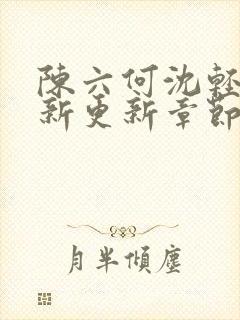 陳六何沈輕
新更新章節
月半傾塵